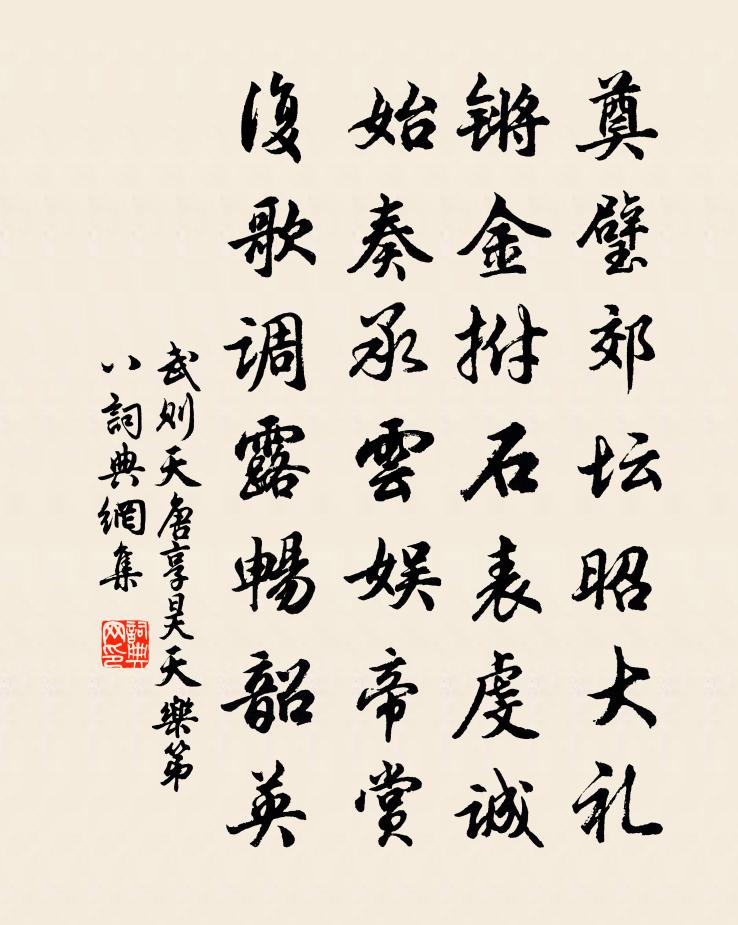 奠璧郊坛昭大礼
锵金拊石表虔诚
始奏承雲娱帝赏
復歌调露暢韶英
武则天唐享昊天樂第
八詞典網集
詞典網印